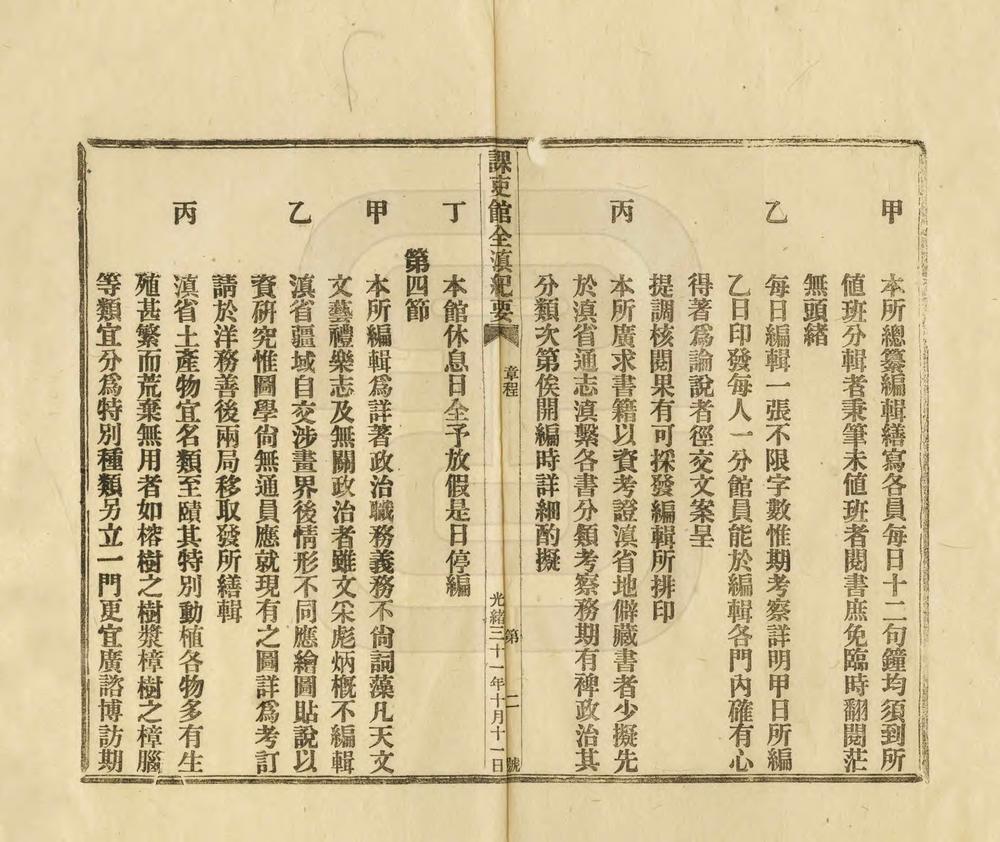 甲　本所總纂編輯繕寫各員每日十二句鐘均須到所
値班分輯者秉筆未値班者閱書庶免臨時翻閱茫
無頭緒
乙　每日編輯一張不限字數惟期考察詳明甲日所編
乙日印發每人一分館員能於編輯各門內確有心
得著爲論說者徑交文案呈
提調核閱果有可採發編輯所排印
丙　本所廣求書籍以資考證滇省地僻藏書者少擬先
於滇省通志滇繫各書分類考察務期有裨政治其
分類次第俟開編時詳細酌擬
課吏館全滇紀要
章程
第二號
光緒三十一年十月十一日
丁　本館休息日全予放假是日停編
第四節
甲　本所編輯爲詳著政治職務義務不尙詞藻凡天文
文藝禮樂志及無關政治者雖文采彪炳槪不編輯
乙　滇省疆域自交涉畫界後情形不同應繪圖貼說以
資硏究惟圖學尙無通員應就現有之圖詳爲考訂
請於洋務善後兩局移取發所繕輯
丙　滇省土產物宜名類至賾其特別動植各物多有生
殖甚繁而荒棄無用者如榕樹之樹漿樟樹之樟腦
等類宜分爲特別種類另立一門更宜廣諮博訪期